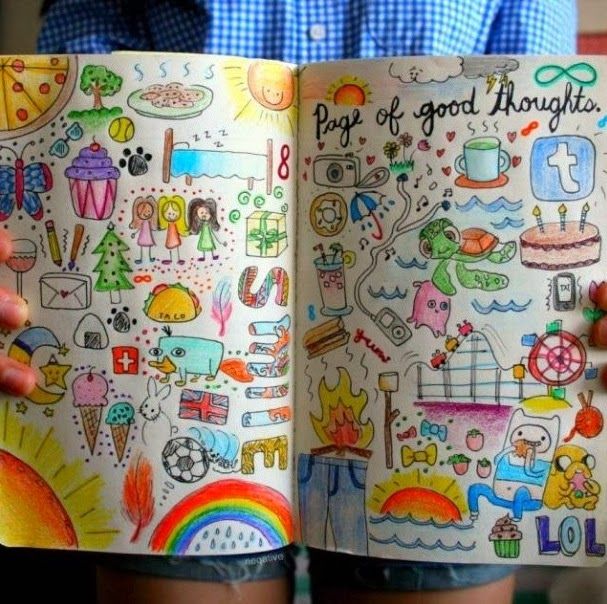 Page of good thoughts.
z z z
t
TACO
SMILE
yum!
LOL
negative